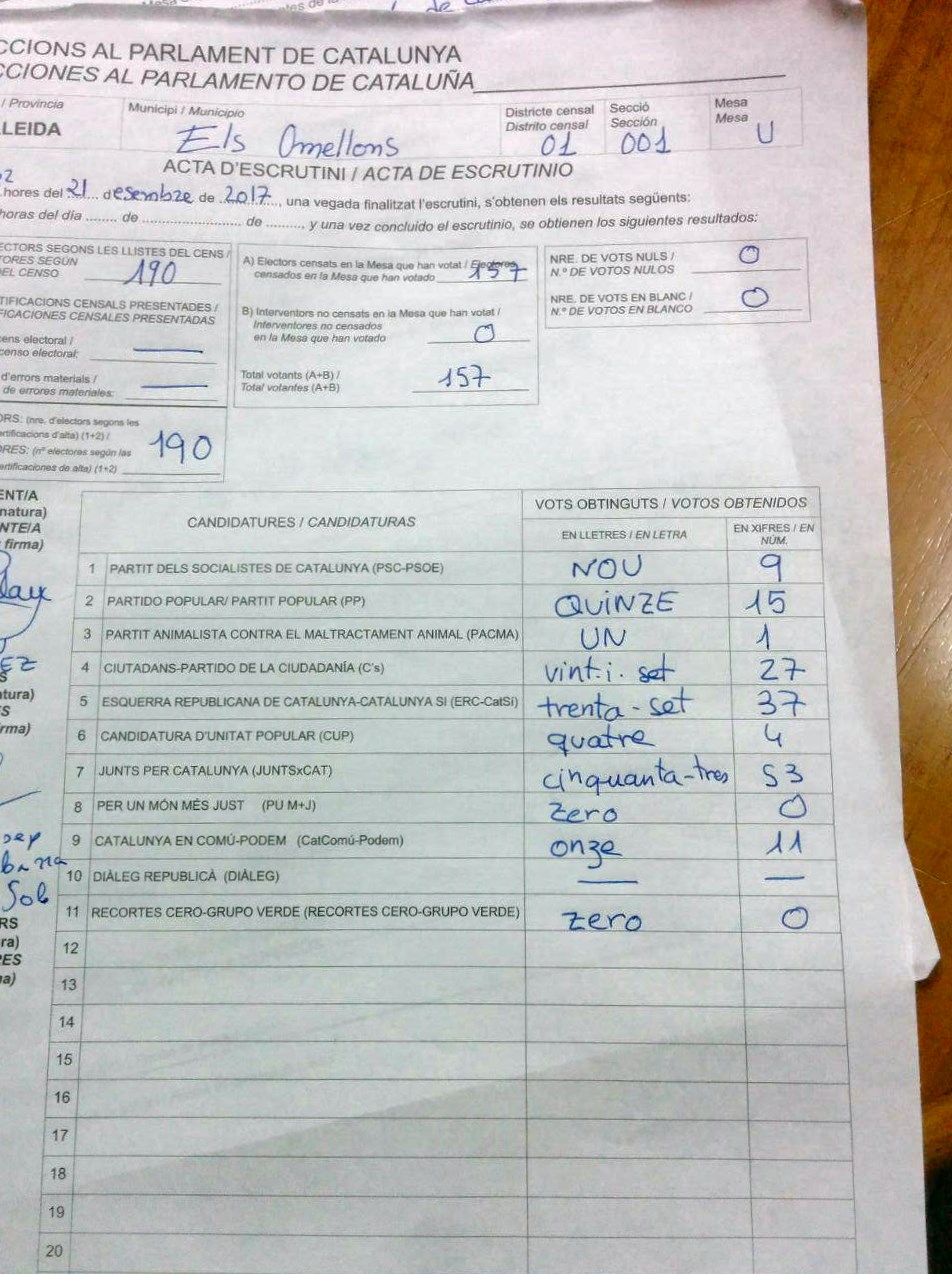 CCIONS AL PARLAMENT DE CATALUNYA
CCIONES AL PARLAMENTO DE CATALUÑA
/ Província
LLEIDA
Municipi / Municipio
Els Omellons
Districte censal
Distrito censal
01
Secció
Sección
001
Mesa
Mesa
U
ACTA D'ESCRUTINI / ACTA DE ESCRUTINIO
hores del 21 desembre de 2017, una vegada finalitzat l'escrutini, s'obtenen els resultats següents:
horas del día ........ de ........................ de ........., y una vez concluido el escrutinio, se obtienen los siguientes resultados:
ECTORS SEGONS LES LLISTES DEL CENS /
TORES SEGÚN
EL CENSO 190
TIFICACIONS CENSALS PRESENTADES /
FICACIONES CENSALES PRESENTADAS
ens electoral /
censo electoral: —
d'errors materials /
de errores materiales: —
ORS: (nre. d'electors segons les
ertificacions d'alta) (1+2) /
ORES: (nº electores según las
ertificaciones de alta) (1+2)
190
A) Electors censats en la Mesa que han votat / Electores
censados en la Mesa que han votado 157
B) Interventors no censats en la Mesa que han votat /
Interventores no censados
en la Mesa que han votado 0
Total votants (A+B) /
Total votantes (A+B) 157
NRE. DE VOTS NULS /
N.º DE VOTOS NULOS 0
NRE. DE VOTS EN BLANC /
N.º DE VOTOS EN BLANCO 0
ENT/A
natura)
NTE/A
firma)
CANDIDATURES / CANDIDATURAS
VOTS OBTINGUTS / VOTOS OBTENIDOS
EN LLETRES / EN LETRA
EN XIFRES / EN
NÚM.
1 PARTIT DELS SOCIALISTES DE CATALUNYA (PSC-PSOE) NOU 9
2 PARTIDO POPULAR/ PARTIT POPULAR (PP) QUINZE 15
3 PARTIT ANIMALISTA CONTRA EL MALTRACTAMENT ANIMAL (PACMA) UN 1
4 CIUTADANS-PARTIDO DE LA CIUDADANÍA (C's) vint.i.set 27
5 ESQUERRA REPUBLICANA DE CATALUNYA-CATALUNYA SI (ERC-CatSí) trenta-set 37
6 CANDIDATURA D'UNITAT POPULAR (CUP) quatre 4
7 JUNTS PER CATALUNYA (JUNTSxCAT) cinquanta-tres 53
8 PER UN MÓN MÉS JUST (PU M+J) zero 0
9 CATALUNYA EN COMÚ-PODEM (CatComú-Podem) onze 11
10 DIÀLEG REPUBLICÀ (DIÀLEG) — —
11 RECORTES CERO-GRUPO VERDE (RECORTES CERO-GRUPO VERDE) zero 0
12
13
14
15
16
17
18
19
20
EZ
S
atura)
S
rma)
sep
Sol
RS
ra)
RES
na)